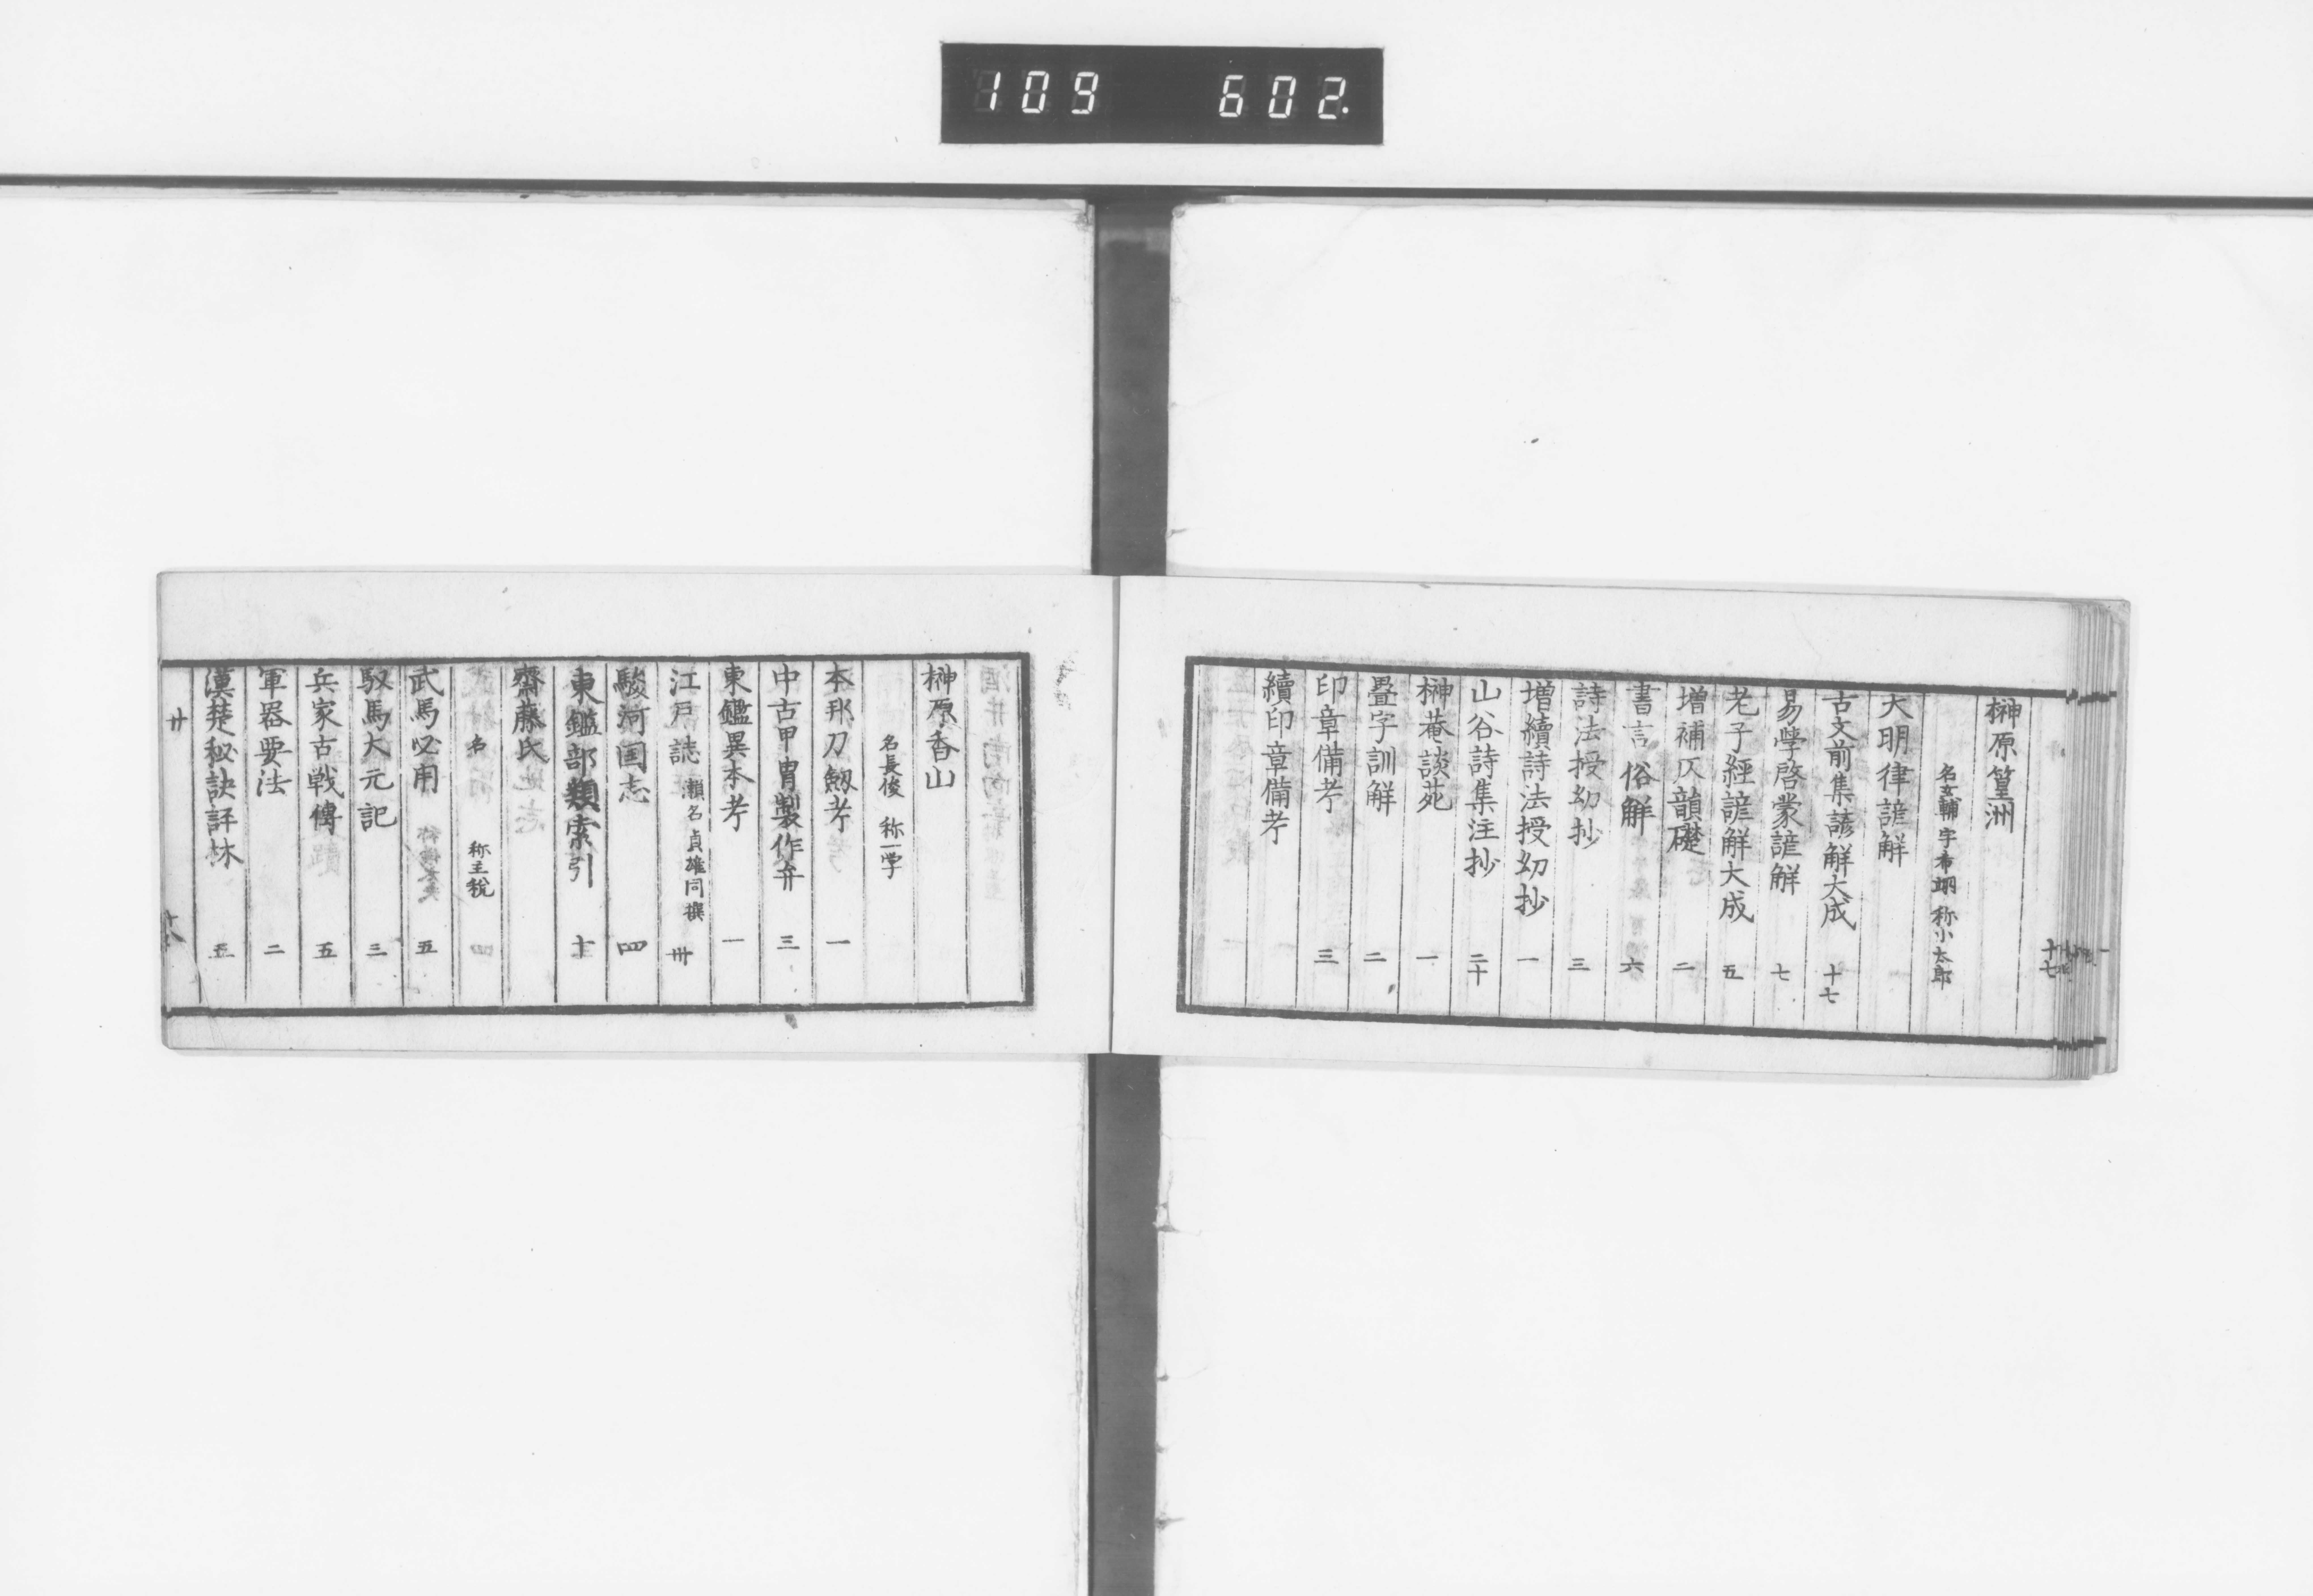 109 602.
十七
榊原篁洲
名玄輔 字希翊 称小太郎
大明律諺解
古文前集諺解大成 十七
易學啓蒙諺解 七
老子經諺解大成 五
増補仄韻礎 二
書言俗解 六
詩法授幼抄 三
増續詩法授幼抄 一
山谷詩集注抄 二十
榊菴談苑 一
疊字訓解 二
印章備考 三
續印章備考
榊原香山
名長俊 称一学
本邦刀劔考 一
中古甲冑製作弁 三
東鑑異本考 一
江戸誌 瀬名貞雄同撰 卅
駿河国志 四
東鑑部類索引 十
齋藤氏
名 称主税
武馬必用 五
馭馬大元記 三
兵家古戦傳 五
軍器要法 二
漢楚秘訣評林 五
廾